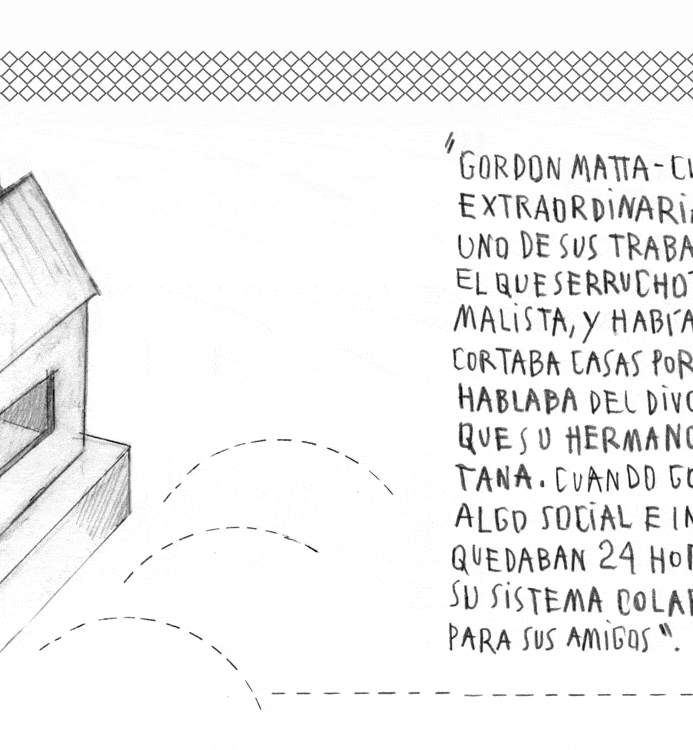 "GORDON MATTA-CL
EXTRAORDINARI
UNO DE SUS TRABA
EL QUE SERRUCHO
MALISTA, Y HABÍA
CORTABA CASAS POR
HABLABA DEL DIVO
QUE SU HERMANO
TANA. CUANDO GO
ALGO SOCIAL E IN
QUEDABAN 24 HOR
SU SISTEMA COLAP
PARA SUS AMIGOS".